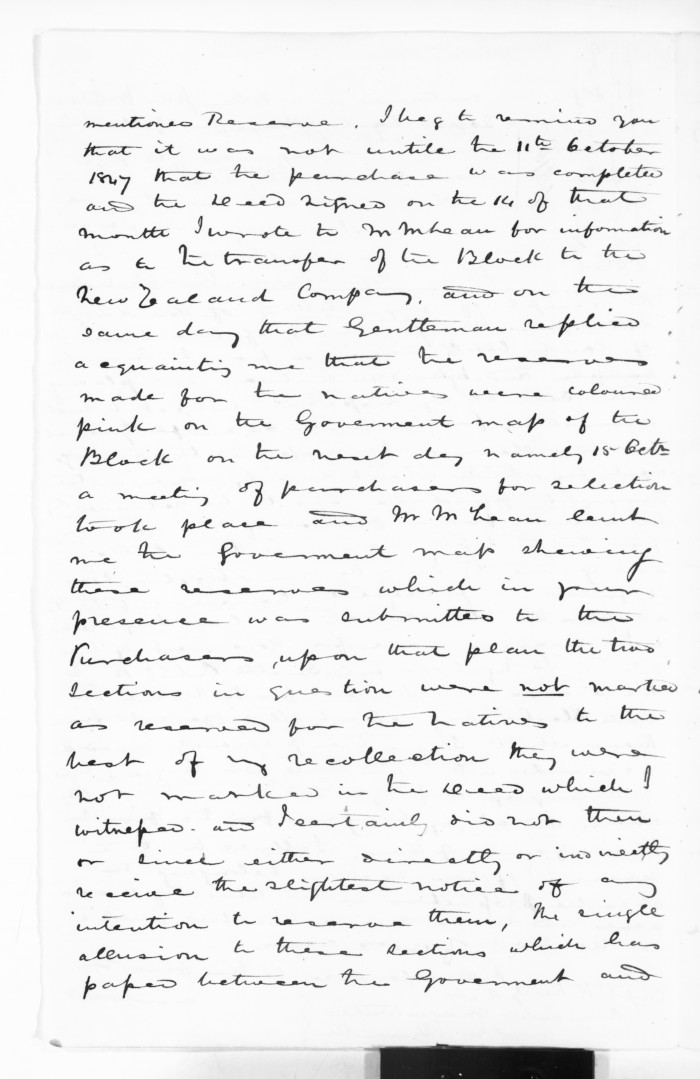 mentioned Reserve. I beg to remind you
that it was not untile the 11th October
1847 that the purchase was completed
and the Deed signed on the 14 of that
month I wrote to Mr McLean for information
as to the transfer of the Block to the
New Zealand Company, and on the
same day that Gentleman replied
acquainting me that the reserves
made for the natives were coloured
pink on the Goverment map of the
Block on the next day namely 15 Octr
a meeting of purchasers for selection
took place and Mr McLean lent
me the Goverment map shewing
these reserves which in your
presence was submitted to the
Purchasers, upon that plan the two
sections in question were not marked
as reserved for the Natives to the
best of my recollection they were
not marked in the Deed which I
witnessed. and I certainly did not then
or since either directly or indirectly
receive the slightest notice of any
intention to reserve them, The single
allusion to these sections which has
passed between the Goverment and